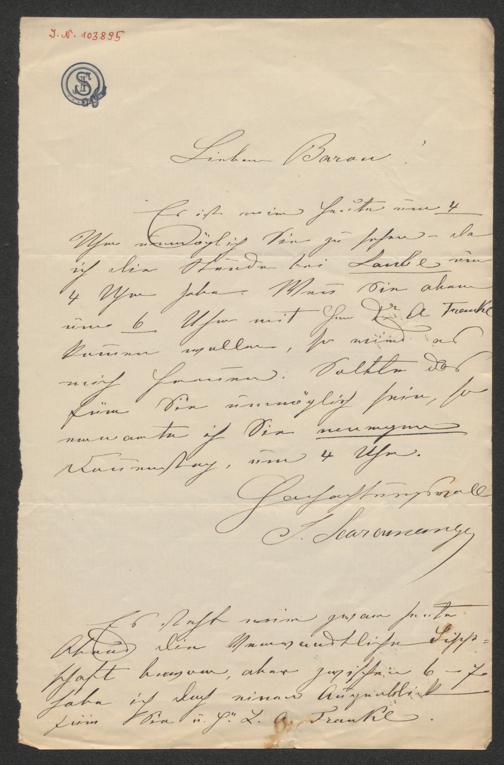 I. N. 103895
Lieber Baron!
Es ist mir heute um 4
Uhr unmöglich Sie zu sehen – da
ich die Stunde bei Laube um
4 Uhr habe. Wenn Sie aber
um 6 Uhr mit H Dr A Frankl
kommen wollen, so wird es
mich freuen. Sollte das
für Sie unmöglich sein, so
erwarte ich Sie
Donnerstag, um 4 Uhr.
Hochachtungsvoll
Es steht mir zwar heute
Abend die
bevor, aber zwischen 6 – 7
habe ich doch einen Augenblick
für Sie u. H. L. A. Frankl.